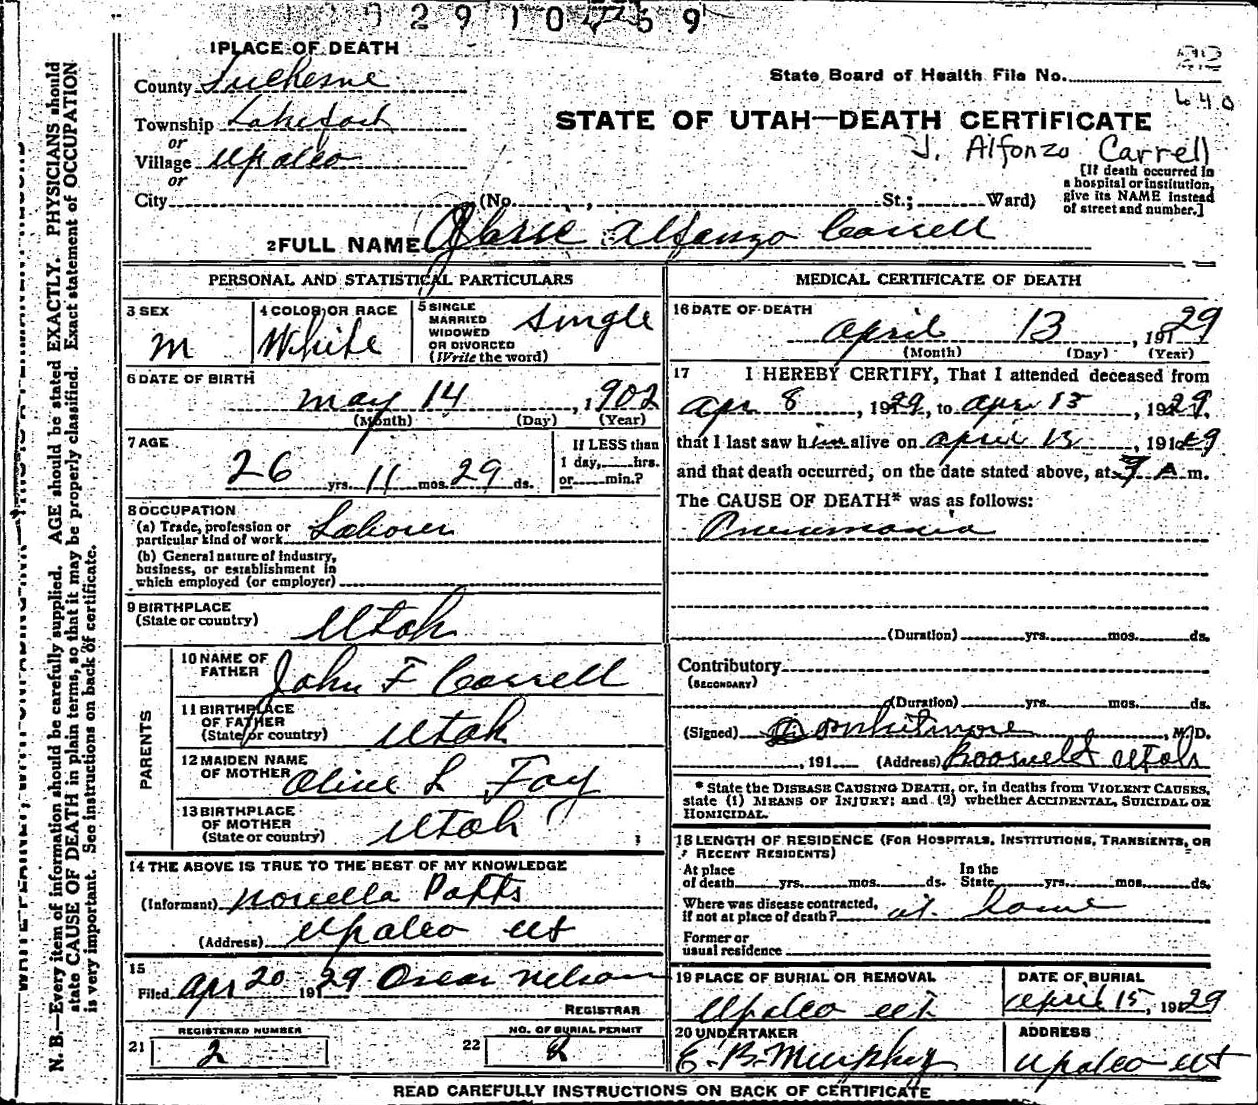 1 PLACE OF DEATH
County Duchesne
Township Lakefork
or
Village Upalco
or
City (No. , St.; Ward)
State Board of Health File No.
22
640
STATE OF UTAH—DEATH CERTIFICATE
J. Alfonzo Carrell
[If death occurred in
a hospital or institution,
give its NAME instead
of street and number.]
2 FULL NAME Alfonzo Carrell
PERSONAL AND STATISTICAL PARTICULARS
3 SEX
m
4 COLOR OR RACE
White
5 SINGLE
MARRIED
WIDOWED
OR DIVORCED
(Write the word)
Single
6 DATE OF BIRTH
may 14, 1902
(Month) (Day) (Year)
7 AGE
26 yrs. 11 mos. 29 ds.
If LESS than
1 day, hrs.
or min.?
8 OCCUPATION
(a) Trade, profession or
particular kind of work Laborer
(b) General nature of industry,
business, or establishment in
which employed (or employer)
9 BIRTHPLACE
(State or country)
Utah
PARENTS
10 NAME OF
FATHER
John F Carrell
11 BIRTHPLACE
OF FATHER
(State or country)
Utah
12 MAIDEN NAME
OF MOTHER
Alice L Foy
13 BIRTHPLACE
OF MOTHER
(State or country)
Utah
14 THE ABOVE IS TRUE TO THE BEST OF MY KNOWLEDGE
(Informant) Novella Potts
(Address) Upalco Ut
15
Filed apr 20 1929 Oscar Nelson
REGISTRAR
REGISTERED NUMBER
21 2
NO. OF BURIAL PERMIT
22 2
MEDICAL CERTIFICATE OF DEATH
16 DATE OF DEATH
april 13, 1929
(Month) (Day) (Year)
17 I HEREBY CERTIFY, That I attended deceased from
apr 8, 1929, to apr 13, 1929.
that I last saw him alive on april 13, 1929
and that death occurred, on the date stated above, at 9 A m.
The CAUSE OF DEATH* was as follows:
Pneumonia
(Duration) yrs. mos. ds.
Contributory
(SECONDARY)
(Duration) yrs. mos. ds.
(Signed) Whitmore, M. D.
, 191 (Address) Roosevelt Utah
* State the DISEASE CAUSING DEATH, or, in deaths from VIOLENT CAUSES,
state (1) MEANS OF INJURY; and (2) whether ACCIDENTAL, SUICIDAL OR
HOMICIDAL.
18 LENGTH OF RESIDENCE (FOR HOSPITALS, INSTITUTIONS, TRANSIENTS, OR
RECENT RESIDENTS)
At place
of death yrs. mos. ds.
In the
State yrs. mos. ds.
Where was disease contracted,
if not at place of death? at home
Former or
usual residence
19 PLACE OF BURIAL OR REMOVAL
Upalco Ut
DATE OF BURIAL
april 15, 1929
20 UNDERTAKER
E. B. Murphy
ADDRESS
Upalco Ut
READ CAREFULLY INSTRUCTIONS ON BACK OF CERTIFICATE
N. B.—Every item of information should be carefully supplied. AGE should be stated EXACTLY. PHYSICIANS should
state CAUSE OF DEATH in plain terms, so that it may be properly classified. Exact statement of OCCUPATION
is very important. See instructions on back of certificate.